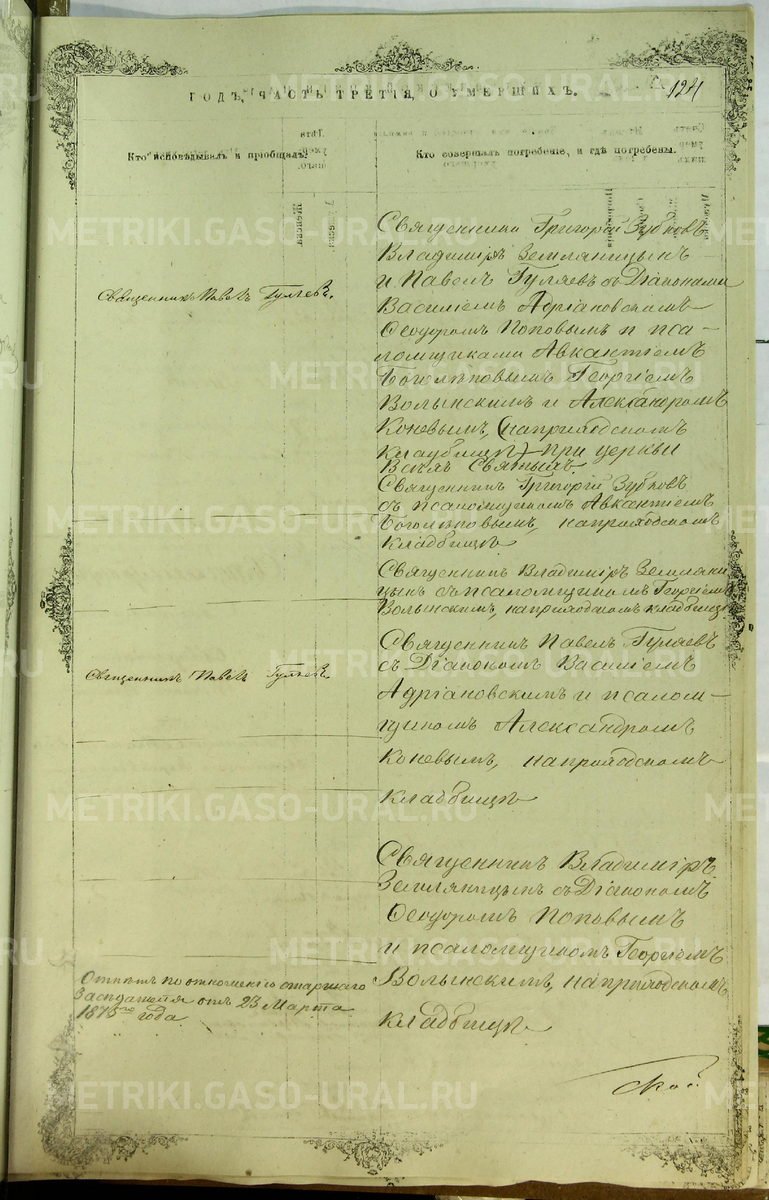 ГОДЪ, ЧАСТЬ ТРЕТІЯ, О УМЕРШИХЪ.
124
Кто исповѣдывалъ и пріобщалъ.
Кто совершалъ погребеніе, и гдѣ погребены.
Священники Григорій Зубковъ
Владиміръ Земляницынъ
и Павелъ Гуляевъ съ Діаконами
Священникъ Павелъ Гуляевъ.
Василіемъ Адріановскимъ
Ѳеодоромъ Поповымъ и пса-
ломщиками Авксентіемъ
Боголѣповымъ Георгіемъ
Волынскимъ и Александромъ
Коневымъ, (на приходскомъ
кладбищѣ) при церкви
Всѣхъ Святыхъ.
Священникъ Григорій Зубковъ
съ псаломщикомъ Авксентіемъ
Боголѣповымъ, на приходскомъ
кладбищѣ
Священникъ Владиміръ Земляни
цынъ съ псаломщикомъ Георгіемъ
Волынскимъ, на приходскомъ кладбищѣ
Священникъ Павелъ Гуляевъ
съ Діакономъ Василіемъ
Священникъ Павелъ Гуляевъ.
Адріановскимъ и псалом-
щикомъ Александромъ
Коневымъ, на приходскомъ
кладбищѣ
Священникъ Владиміръ
Земляницынъ съ Діакономъ
Ѳеодоромъ Поповымъ
и псаломщикомъ Георгіемъ
Волынскимъ, на приходскомъ
кладбищѣ
Отпѣтъ по отношенію старшаго
Засѣдателя отъ 23 Марта
1875го года.
METRIKI.GASO-URAL.RU